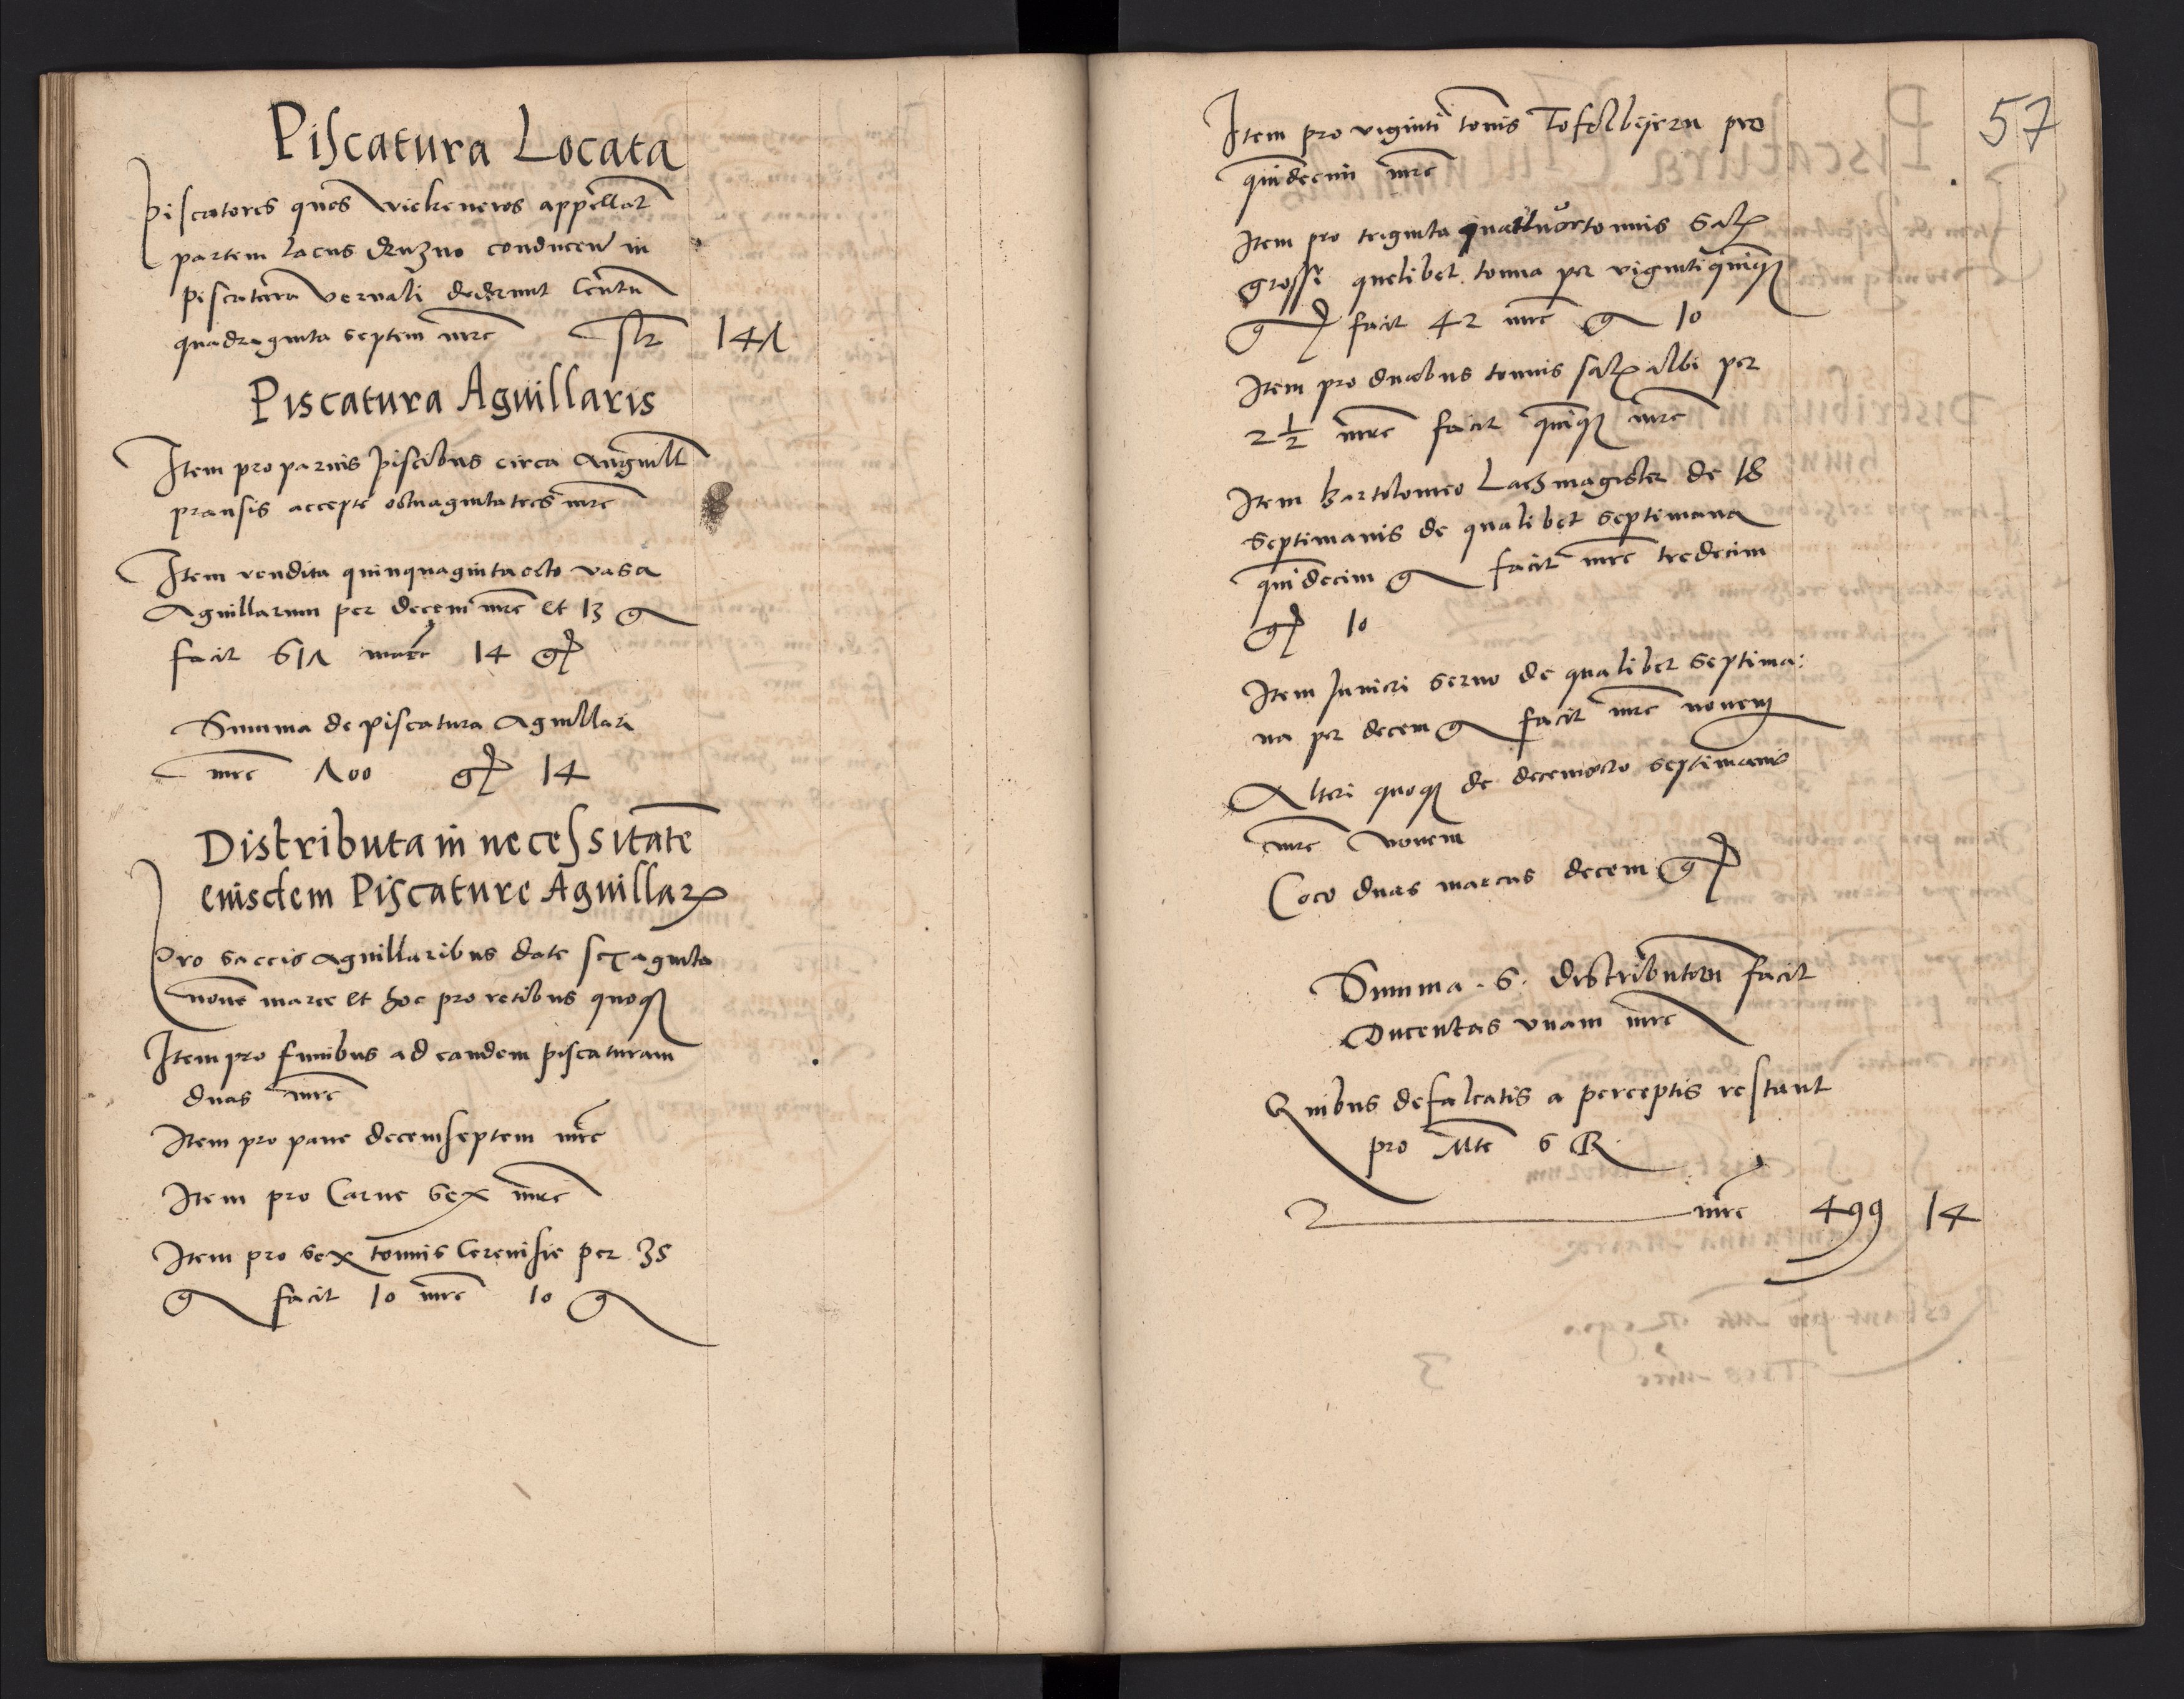 Piscatura Locata
Piscatores quos Wickeneros appellat
partem lacus druzno conducen in
piscatura vernali dederunt Centu
quadraginta septem mrc 147
Piscatura Aguillaris
Item pro parvis piscibus circa Anguill
pransis accepte octuaginta tres mrc
Item vendita quinquaginta octo vasa
Aguillarum per decem mrc et 13 g
facit 617 marc 14 g
Summa de piscatura Aguillari
mrc 700 g 14
Distributa in necessitate
eiusdem Piscature Aguillar
Pro saccis aguillaribus date sexaginta
nove marce et hoc pro retibus quoq
Item pro funibus ad eandem piscaturam
duas mrc
Item pro pane decemseptem mrc
Item pro Carne sex mrc
Item pro sex tonnis Cerevisie per 35
g facit 10 mrc 10 g
57
Item pro viginti tonis Tofelbijern pro
quindecim mrc
Item pro triginta quattuor tonnis Sal
grossi quelibet tonna per viginti quinq
g facit 42 mrc g 10
Item pro duabus tonnis sal albi per
2 1/2 mrc facit quinq mrc
Item Bartolomeo Lachmagister de 18
septimanis de qualibet septimana
quindecim g facit mrc tredecim
g 10
Item Juniori servo de qualibet septima:
na per decem g facit mrc novem
Alteri quoq de decemocto septimanis
mrc novem
Coco duas marcas decem g
Summa . S . distributorum facit
Ducentas unam mrc
Quibus defalcatis a perceptis restant
pro Mte S R
mrc 499 14